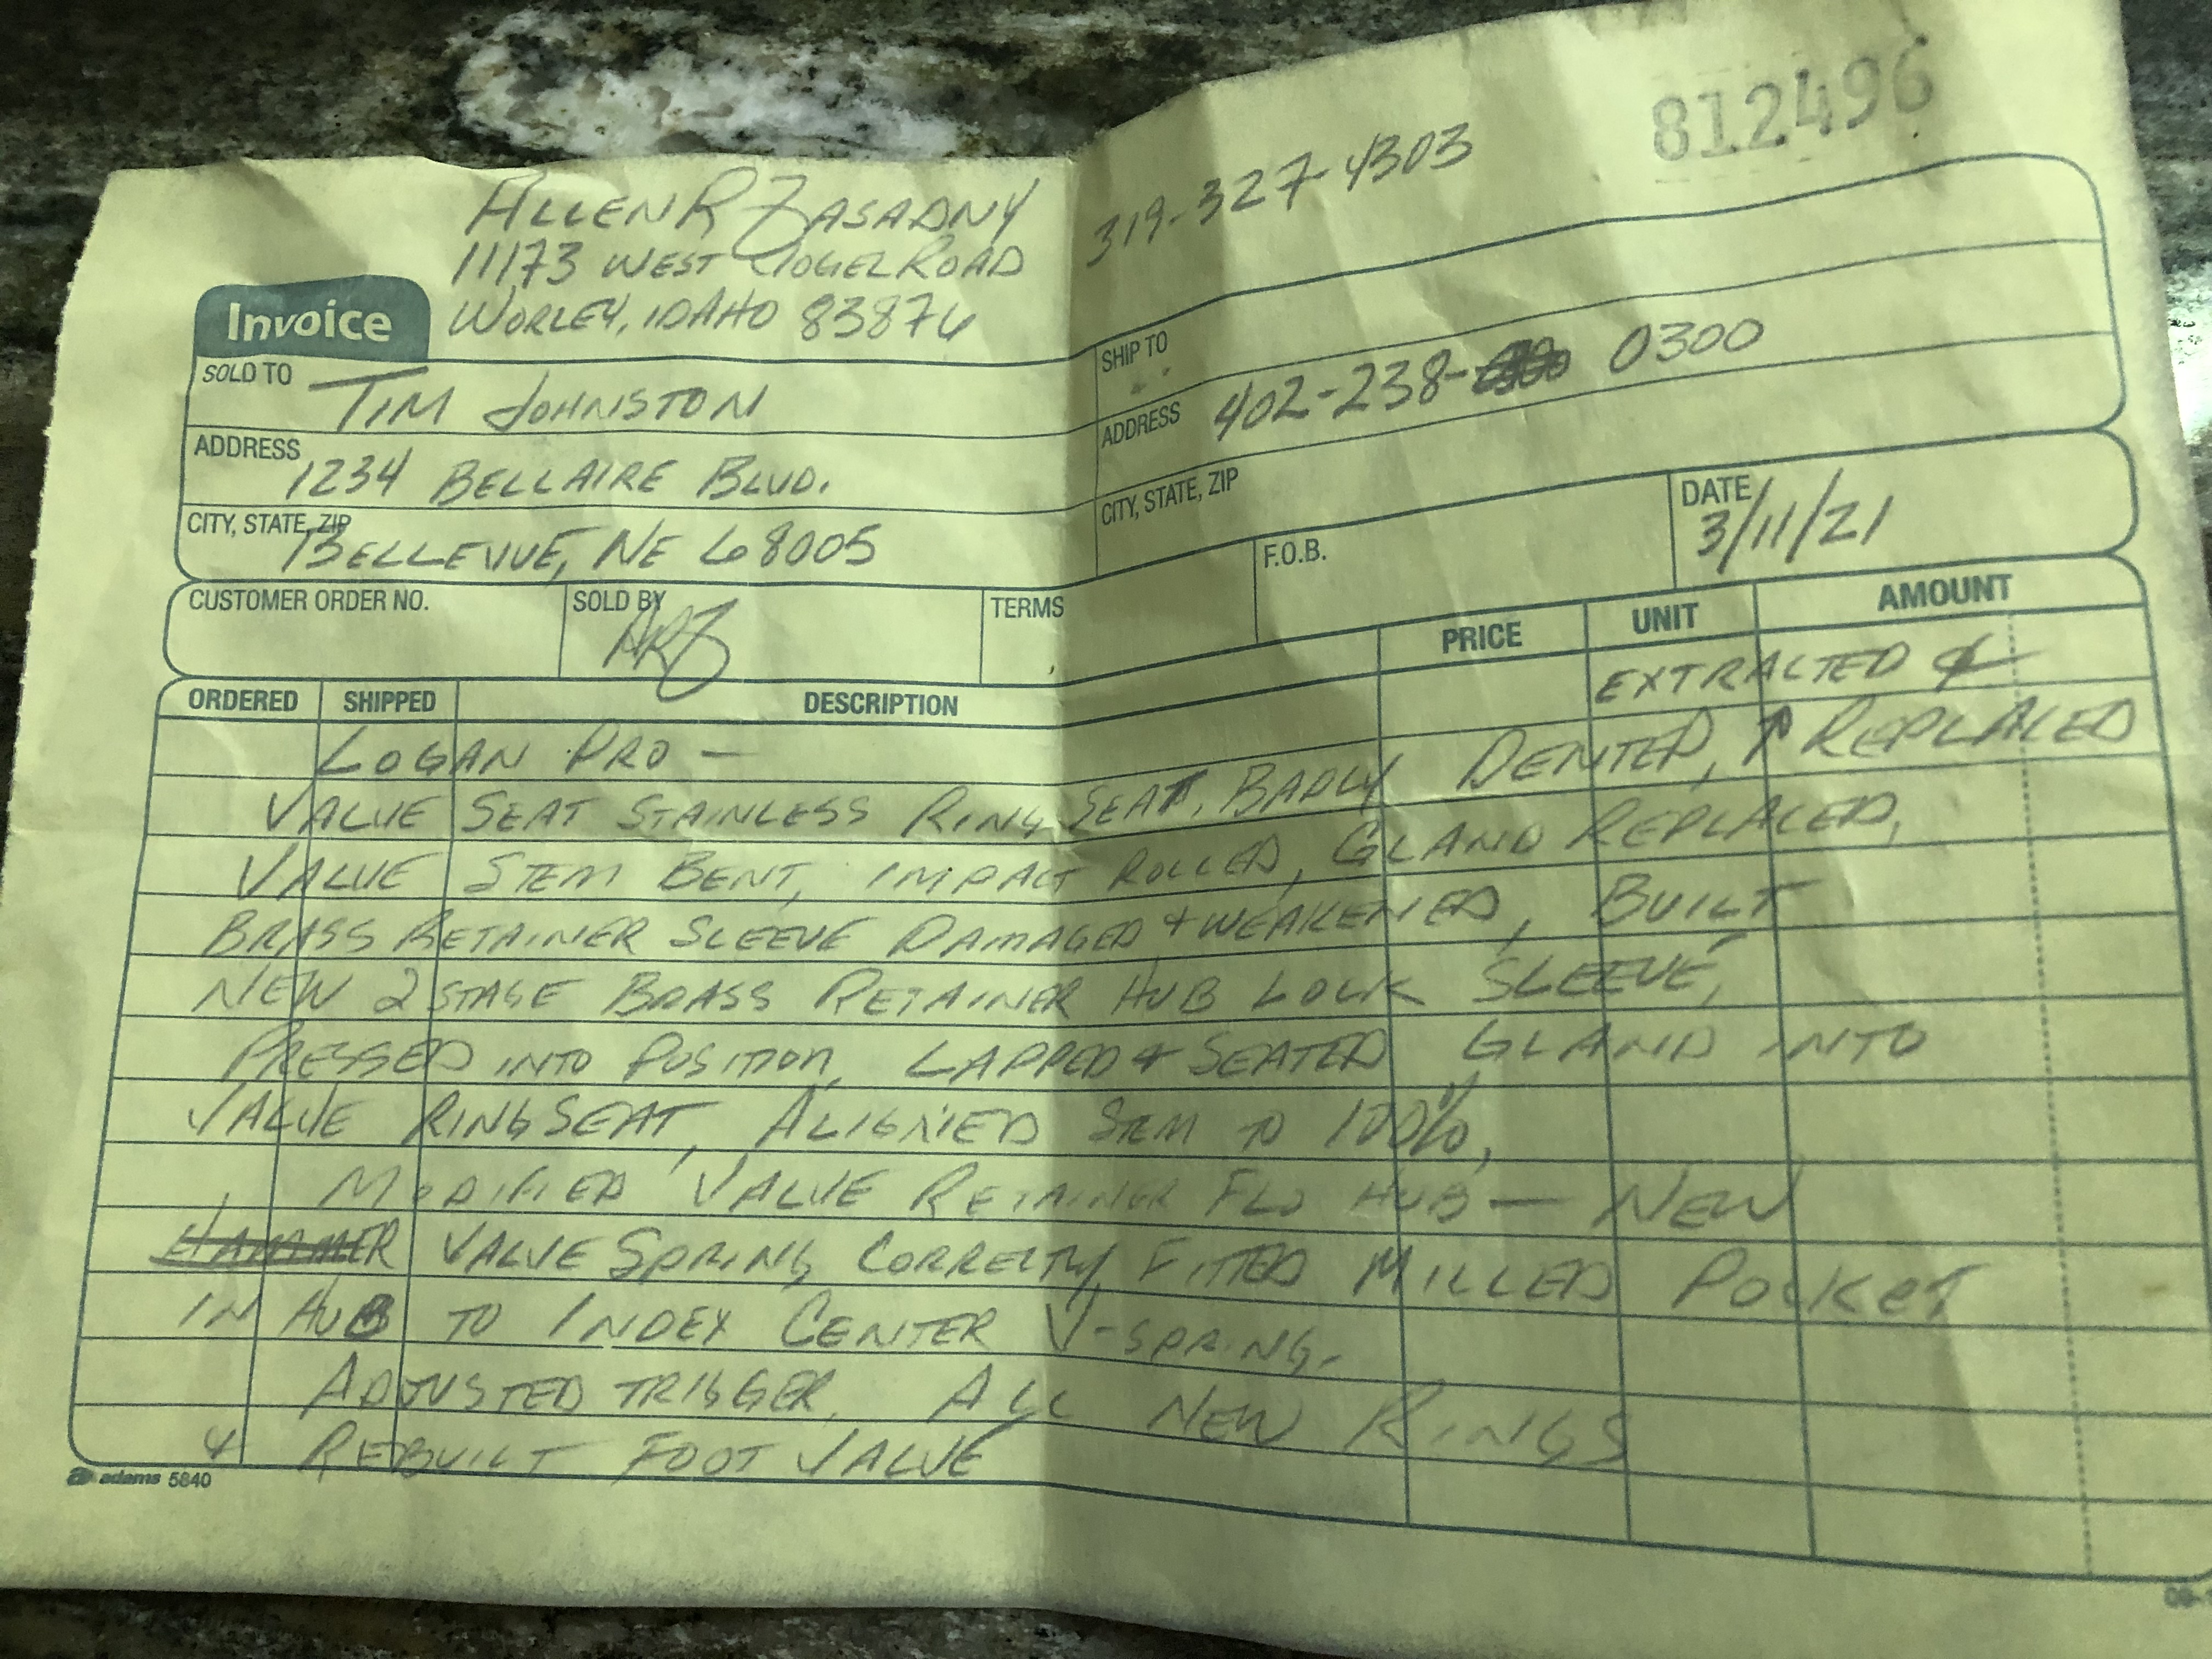 812496
ALLEN R ZASADNY
319-327-4303
11173 WEST ROAD
WORLEY, IDAHO 83876
Invoice
SOLD TO TIM JOHNSTON
SHIP TO
ADDRESS 1234 BELLAIRE BLVD.
ADDRESS 402-238- 0300
CITY, STATE, ZIP BELLEVUE, NE 68005
CITY, STATE, ZIP
CUSTOMER ORDER NO.
SOLD BY ARZ
TERMS
F.O.B.
DATE 3/11/21
ORDERED SHIPPED DESCRIPTION PRICE UNIT AMOUNT
LOGAN PRO — EXTRACTED &
VALVE SEAT STAINLESS RING SEAT, BADLY DENTED, REPLACED
VALVE STEM BENT, IMPACT ROLLED, GLAND REPLACED,
BRASS RETAINER SLEEVE DAMAGED & WEAKENED, BUILT
NEW 2 STAGE BRASS RETAINER HUB LOCK SLEEVE,
PRESSED INTO POSITION, LAPPED & SEATED GLAND INTO
VALVE RING SEAT, ALIGNED STEM TO 100%,
MODIFIED VALVE RETAINER FLO HUB — NEW
HAMMER VALVE SPRING CORRECTLY FITTED MILLED POCKET
IN HUB TO INDEX CENTER V-SPRING.
ADJUSTED TRIGGER, ALL NEW RINGS
& REBUILT FOOT VALVE
adams 5840